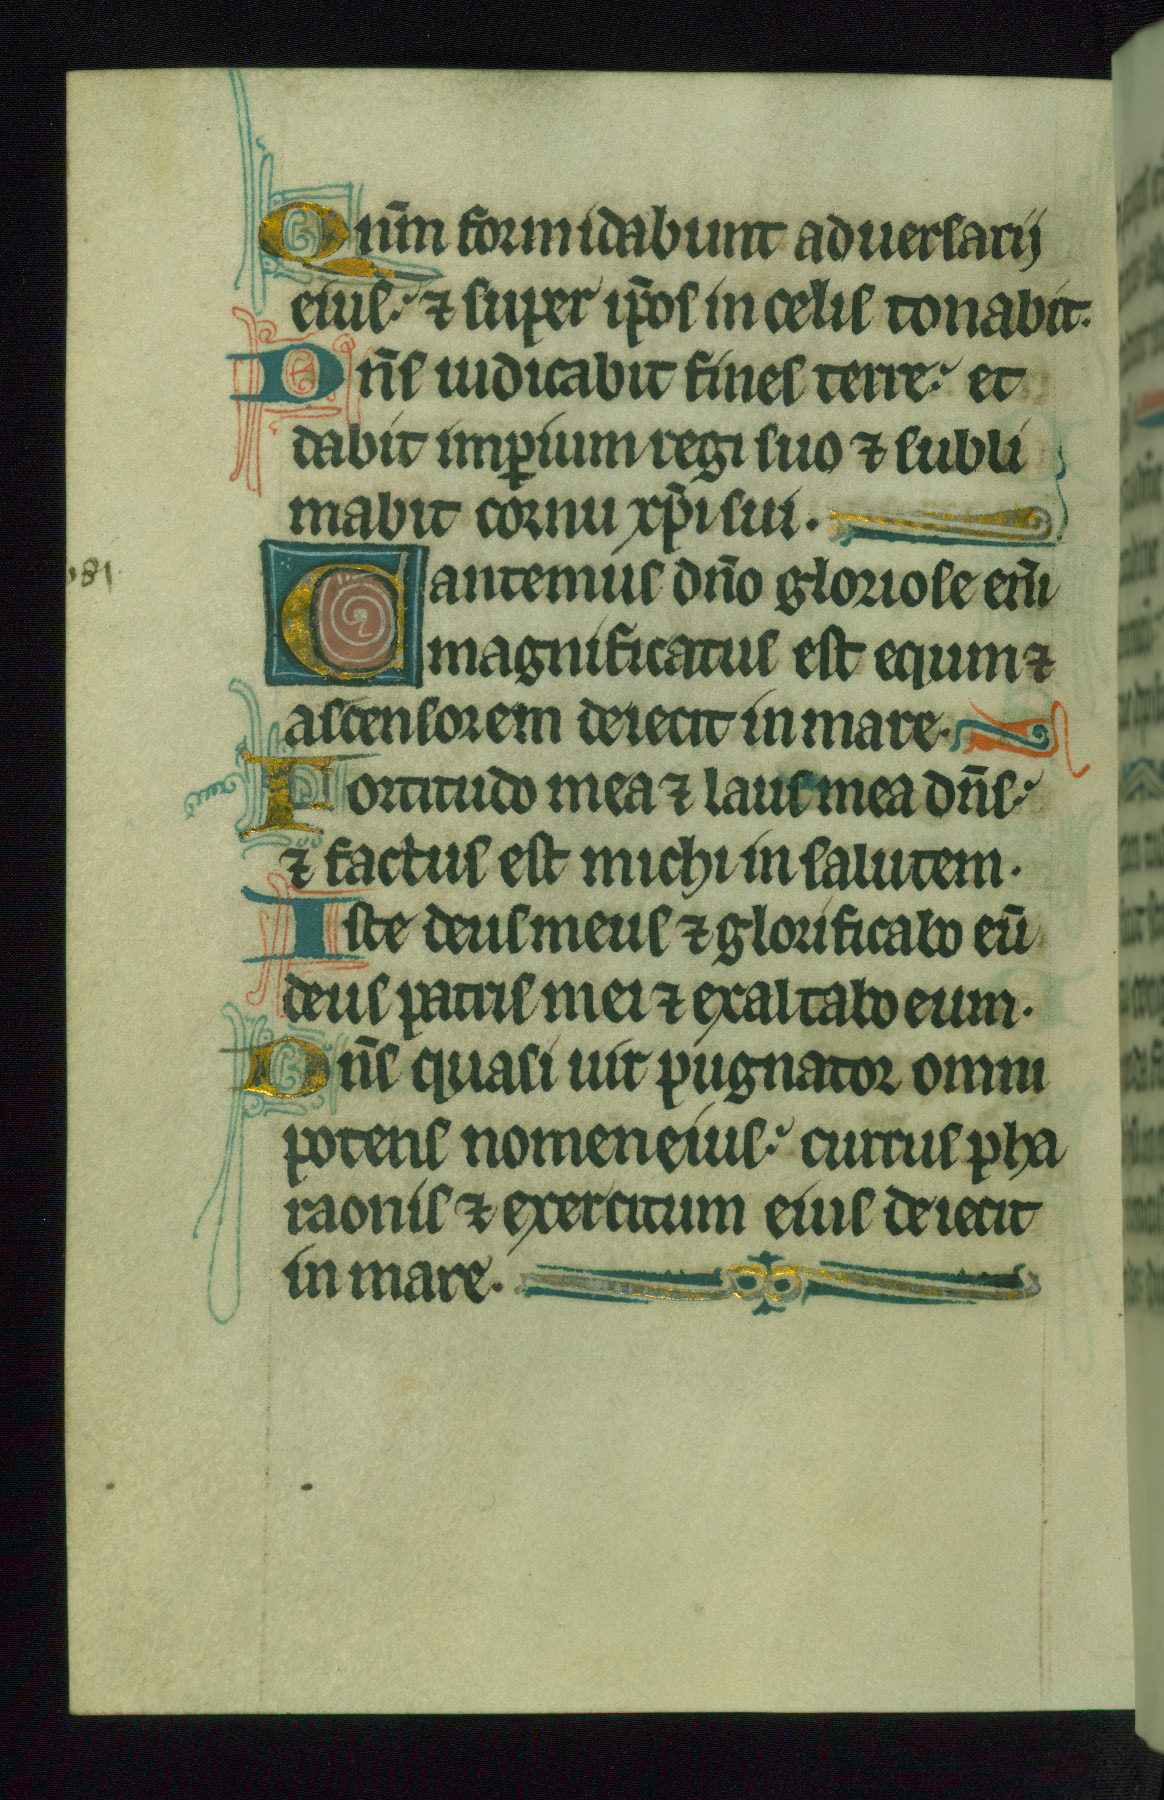 Qum̄ formidabunt aduersarij
eius: ⁊ super ip̄os in celis tonabit.
Dn̄s iudicabit fines terre: et
dabit imꝑium regi suo ⁊ subli
mabit cornu xp̄i sui.
181.
Cantemus dn̄o gloriose eni̅
magnificatus est equum ⁊
ascensorem deiecit in mare.
Fortitudo mea ⁊ laus mea dn̄s:
⁊ factus est michi in salutem.
Iste deus meus ⁊ glorificabo eū
deus patris mei ⁊ exaltabo eum.
Dn̄s quasi uir pugnator omni
potens nomen eius: currus pha
raonis ⁊ exercitum eius deiecit
in mare.